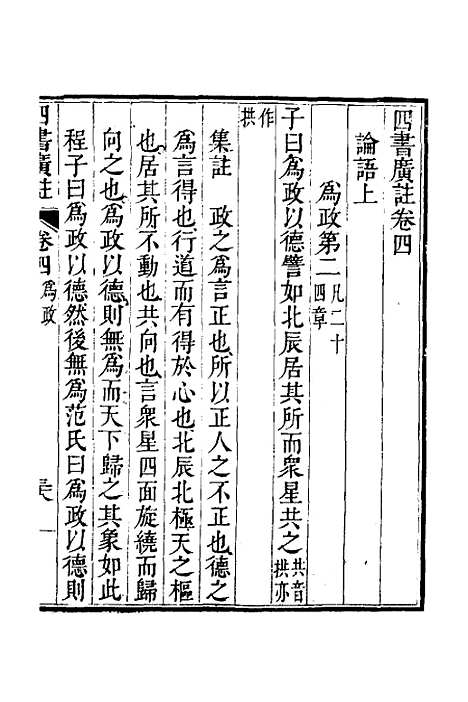 四書廣註卷四
論語上
為政第二凡二十四章
子曰為政以德譬如北辰居其所而衆星共之共音拱亦
作拱
集註　政之為言正也所以正人之不正也德之
為言得也行道而有得於心也北辰北極天之樞
也居其所不動也共向也言衆星四面旋繞而歸
向之也為政以德則無為而天下歸之其象如此
程子曰為政以德然後無為范氏曰為政以德則
四書廣註　卷四為政　一